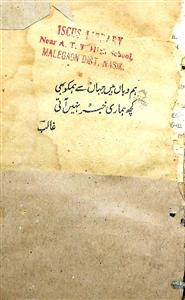 ISCES LIBRARY
Near A. T. T. High School,
MALEGAON DIST. NASIK.
ہم وہاں ہیں جہاں سے ہم کو بھی
کچھ ہماری خبر نہیں آتی
غالب